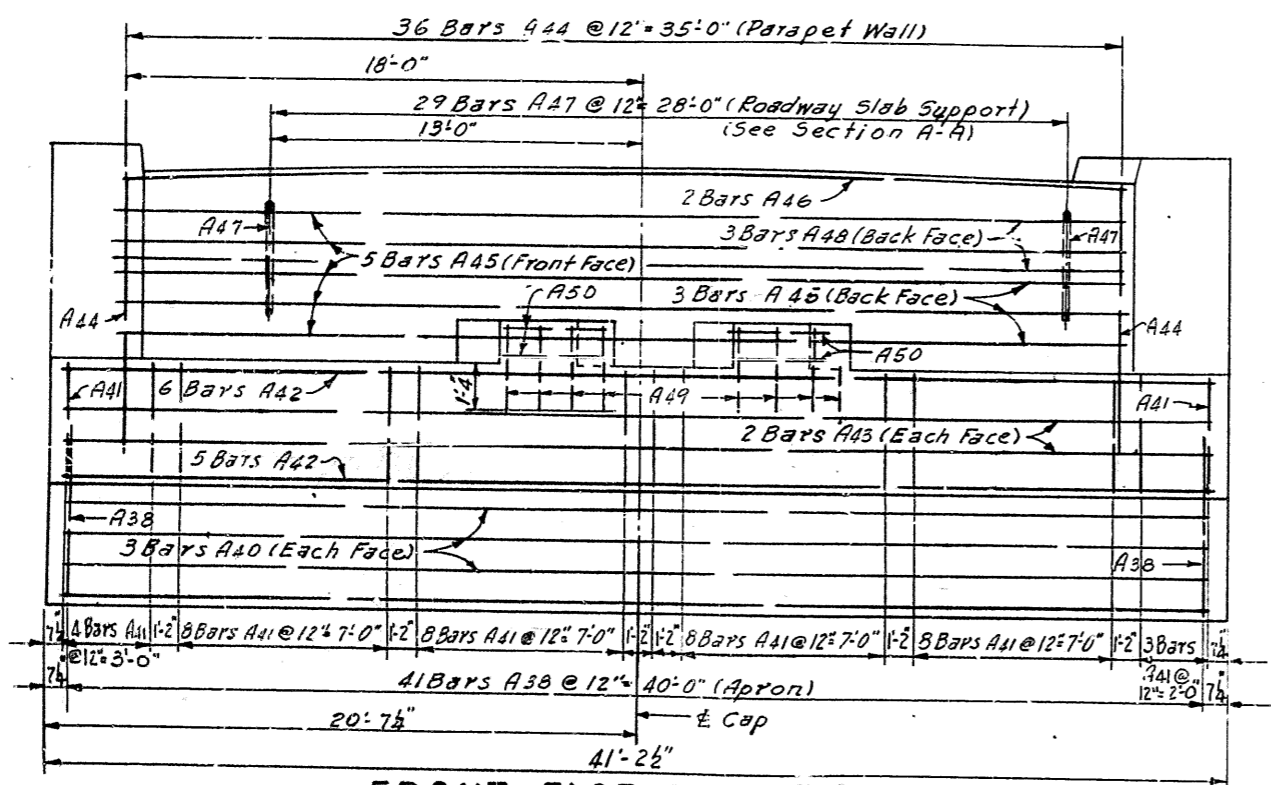 36 Bars A44 @12"= 35'-0" (Parapet Wall)
18'-0"
29 Bars A47 @ 12"= 28'-0" (Roadway Slab Support)
(See Section A-A)
13'-0"
2 Bars A46
A47
3 Bars A48 (Back Face)
A47
5 Bars A45 (Front Face)
A50
3 Bars A45 (Back Face)
A44
A44
A50
A41
6 Bars A42
1'-4"
A49
A41
2 Bars A43 (Each Face)
5 Bars A42
A38
3 Bars A40 (Each Face)
A38
7¼" 4 Bars A41 1'-2" 8 Bars A41 @ 12"= 7'-0" 1'-2" 8 Bars A41 @ 12"= 7'-0" 1'-2" 1'-2" 8 Bars A41 @ 12"= 7'-0" 1'-2" 8 Bars A41 @ 12"= 7'-0" 1'-2" 3 Bars 7¼"
@12"= 3'-0"
7¼" 41 Bars A38 @ 12"= 40'-0" (Apron) A41 @ 7¼"
12"= 2'-0"
20'-7¼"
℄ Cap
41'-2½"